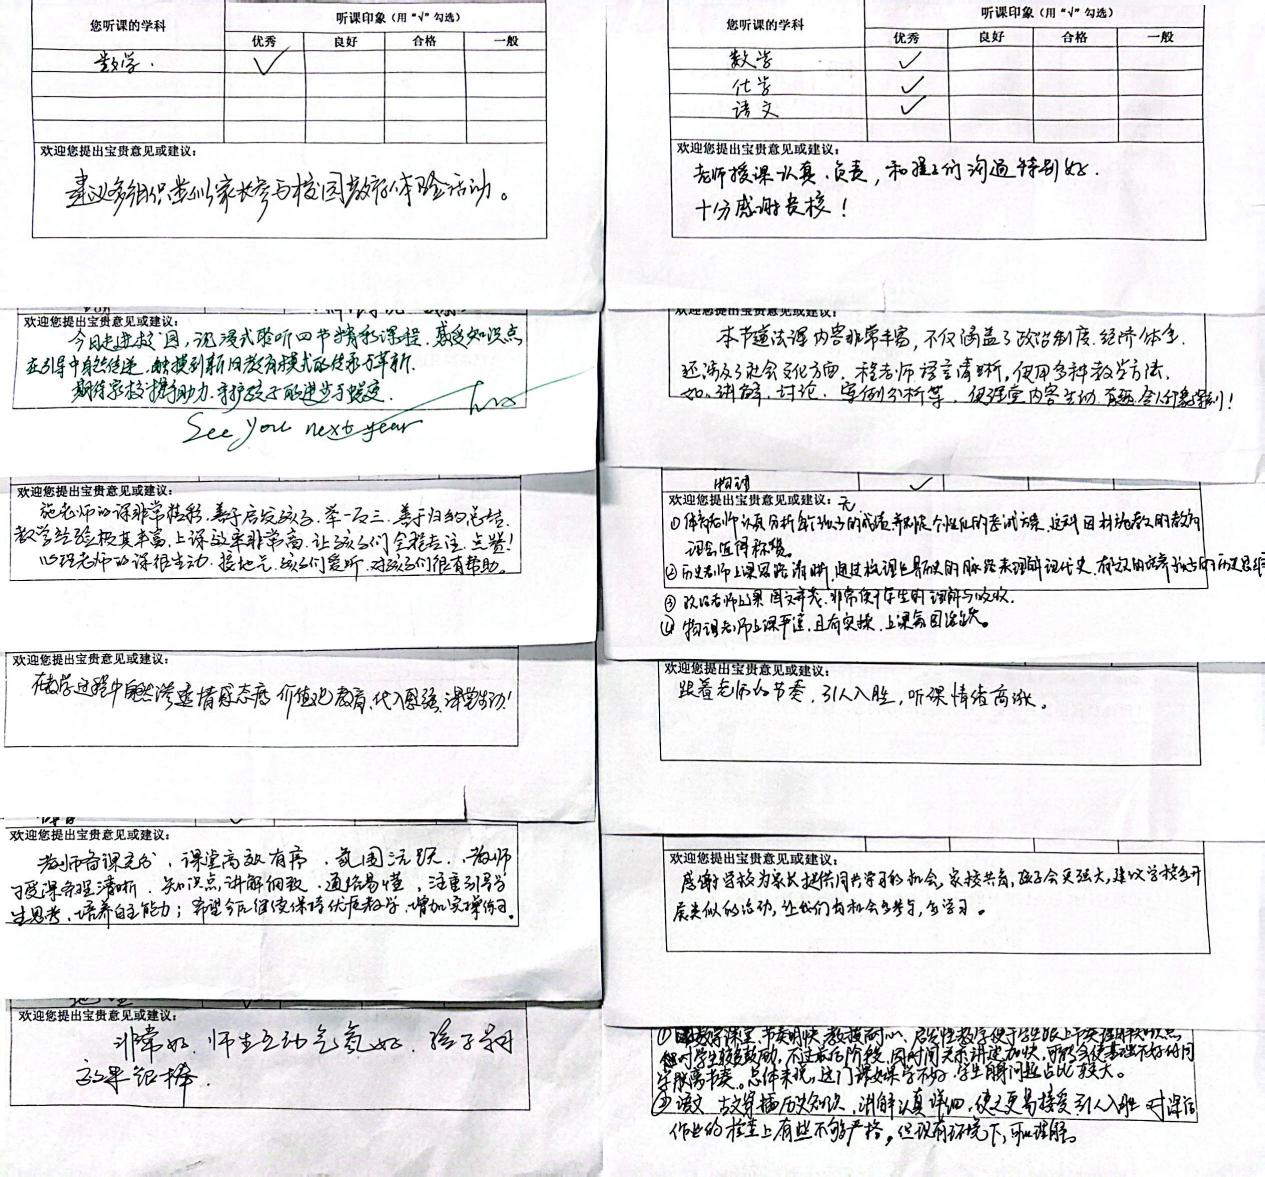 您听课的学科
听课印象（用“√”勾选）
优秀 良好 合格 一般
数学. √
欢迎您提出宝贵意见或建议：
建议多组织类似家长参与校园教育体验活动。
欢迎您提出宝贵意见或建议：
今日走进校园，沉浸式聆听四节精彩课程，感受知识点
在引导中自然传递，触摸到新旧教育模式的传承与革新.
期待家校携手助力，守护孩子的进步与蜕变.
See you next year
欢迎您提出宝贵意见或建议：
施老师的课非常精彩，善于启发孩子，举一反三，善于归纳总结，
教学经验极其丰富，上课效率非常高，让孩子们全程专注，点赞！
心理老师的课很生动，接地气，孩子们爱听，对孩子们很有帮助。
欢迎您提出宝贵意见或建议：
在教学过程中自然渗透情感态度 价值观教育，代入感强，课堂生动！
欢迎您提出宝贵意见或建议：
教师备课充分，课堂高效有序，氛围活跃，教师
授课条理清晰，知识点讲解细致，通俗易懂，注重引导学
生思考，培养自主能力；希望今后继续保持优质教学，增加实操练习。
地理
欢迎您提出宝贵意见或建议：
非常好，师生互动气氛好，孩子学习
效果很棒.
您听课的学科
听课印象（用“√”勾选）
优秀 良好 合格 一般
数学 √
化学 √
语文 √
欢迎您提出宝贵意见或建议：
老师授课认真、负责，和孩子们沟通特别好.
十分感谢贵校！
欢迎您提出宝贵意见或建议：
本节道法课内容非常丰富，不仅涵盖了政治制度、经济体系，
还涉及了社会文化方面，程老师语言清晰，使用多种教学方法，
如、讲解、讨论、案例分析等，使课堂内容生动 有趣，令人印象深刻！
物理 √
欢迎您提出宝贵意见或建议：无
①体育老师认真分析每个孩子的成绩，并制定个性化的考试方案，这种因材施教的教育
理念值得称赞。
②历史老师上课思路清晰，通过梳理世界历史的脉络来理解现代史，有效的培养孩子的历史思维
③政治老师上课图文并茂，非常便于学生的理解与吸收.
④物理老师上课严谨，且有实操，上课氛围活跃。
欢迎您提出宝贵意见或建议：
跟着老师的节奏，引人入胜，听课情绪高涨。
欢迎您提出宝贵意见或建议：
感谢学校为家长提供同共学习的机会，家校共育，孩子会更强大，建议学校多开
展类似的活动，让我们有机会多参与，多学习。
①数学课堂，节奏明快，教授耐心，启发性教学便于学生跟上节奏理解知识点
对学生较多鼓励，不过最后阶段，因时间关系讲述加快，可能会使基础不好的同
学脱离节奏。总体来说，这门课如果学不好，学生自身问题占比较大。
②语文，古文穿插历史知识，讲解认真详细，使之更易接受引人入胜 对课后
作业的检查上有些不够严格，但现有环境下，可以理解。